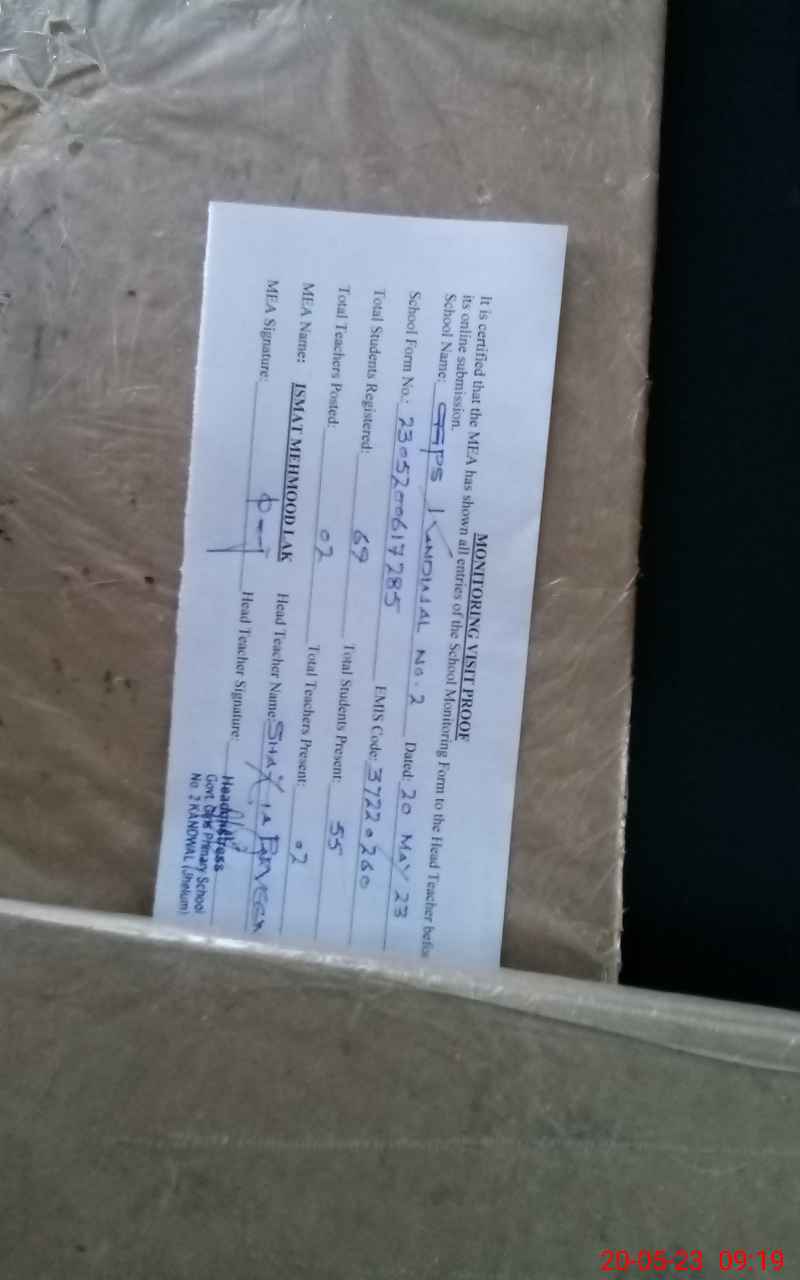 MONITORING VISIT PROOF
It is certified that the MEA has shown all entries of the School Monitoring Form to the Head Teacher before
its online submission.
School Name: GGPS KANDWAL No. 2 Dated: 20 MAY 23
School Form No.: 2305200617285 EMIS Code: 37220260
Total Students Registered: 69 Total Students Present: 55
Total Teachers Posted: 02 Total Teachers Present: 02
MEA Name: ISMAT MEHMOOD LAK Head Teacher Name: SHAZIA PARVEEN
MEA Signature: Head Teacher Signature:
Headmistress
Govt. Girls Primary School
No. 2 KANDWAL (Jhelum)
20-05-23 09:19